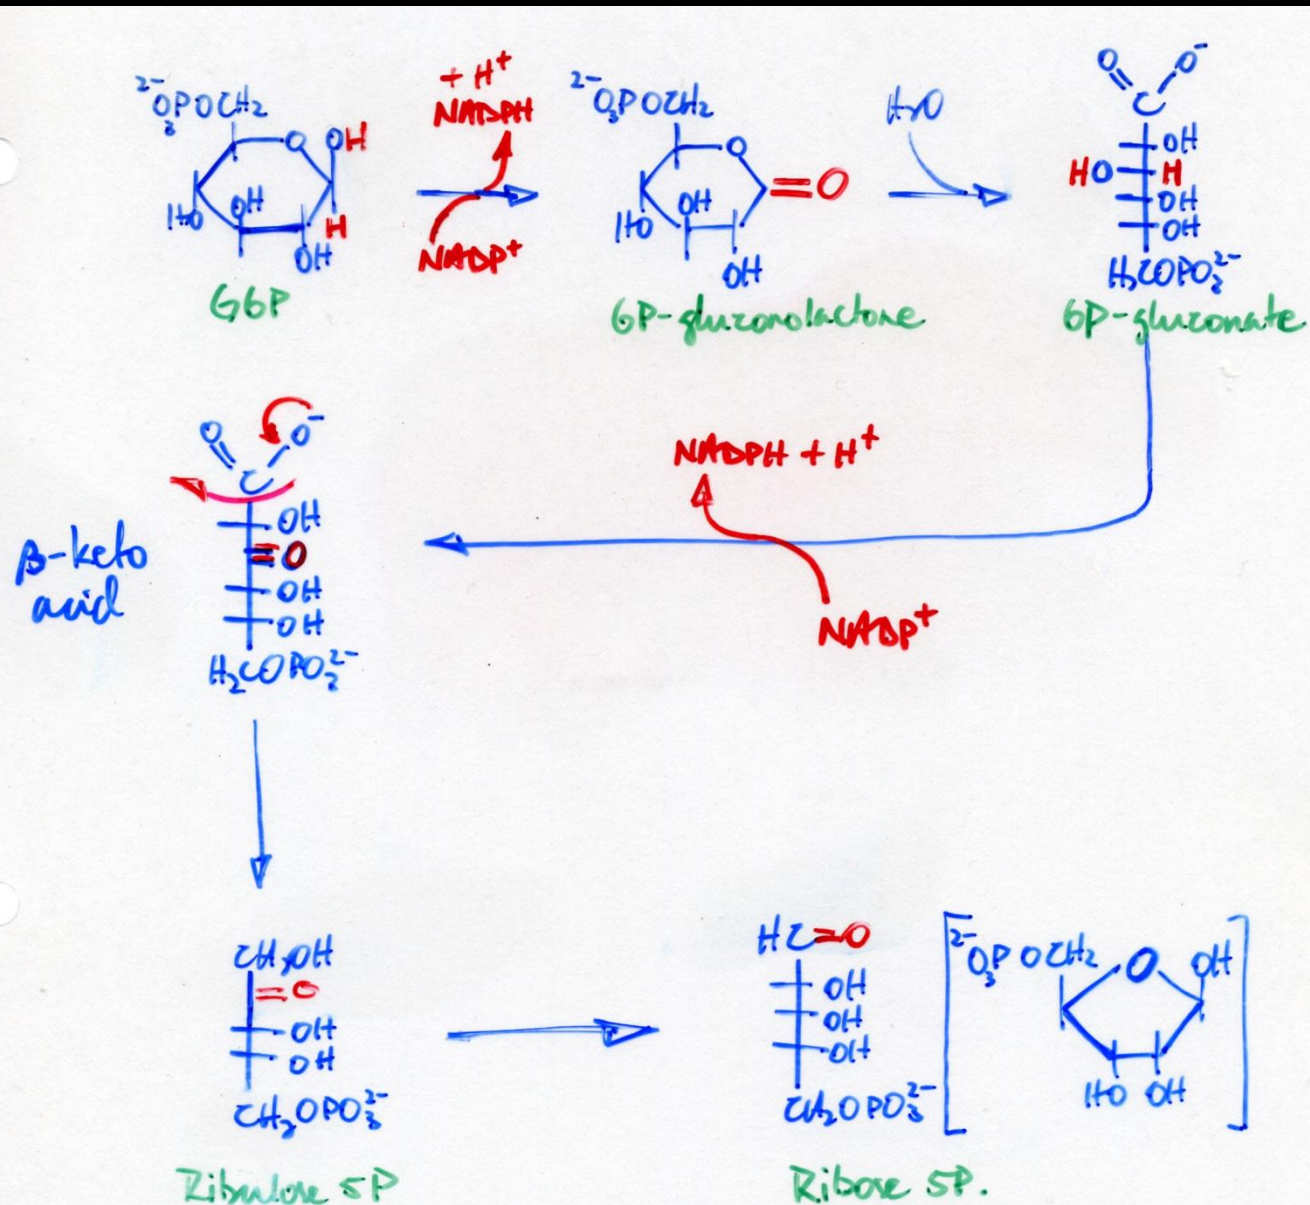 ²⁻O₃POCH₂
O
OH
HO
OH
H
OH
G6P
+ H⁺
NADPH
NADP⁺
²⁻O₃POCH₂
O
=O
HO
OH
OH
6P-gluconolactone
H₂O
O
O⁻
C
OH
HO H
OH
OH
H₂COPO₃²⁻
6P-gluconate
NADPH + H⁺
NADP⁺
O
O⁻
C
OH
=O
OH
OH
H₂COPO₃²⁻
β-keto
acid
CH₂OH
=O
OH
OH
CH₂OPO₃²⁻
Ribulose 5P
HC=O
OH
OH
OH
CH₂OPO₃²⁻
Ribose 5P.
²⁻O₃POCH₂
O
OH
HO OH